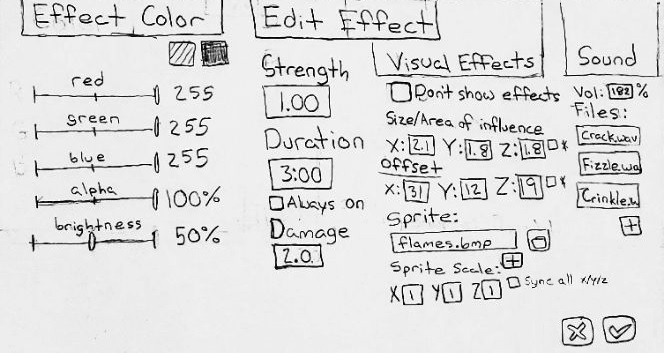 Effect Color
red
255
green
255
blue
255
alpha
100%
brightness
50%
Edit Effect
Strength
1.00
Duration
3:00
Always on
Damage
2.0
Visual Effects
Don't show effects
Size/Area of influence
X: 2.1 Y: 1.8 Z: 1.8 *
Offset
X: 31 Y: 12 Z: 19 *
Sprite:
flames.bmp
Sprite Scale: +
X 1 Y 1 Z 1 Sync all x/y/z
Sound
Vol: 182 %
Files:
Crack.wav
Fizzle.wa
Crinkle.w
+